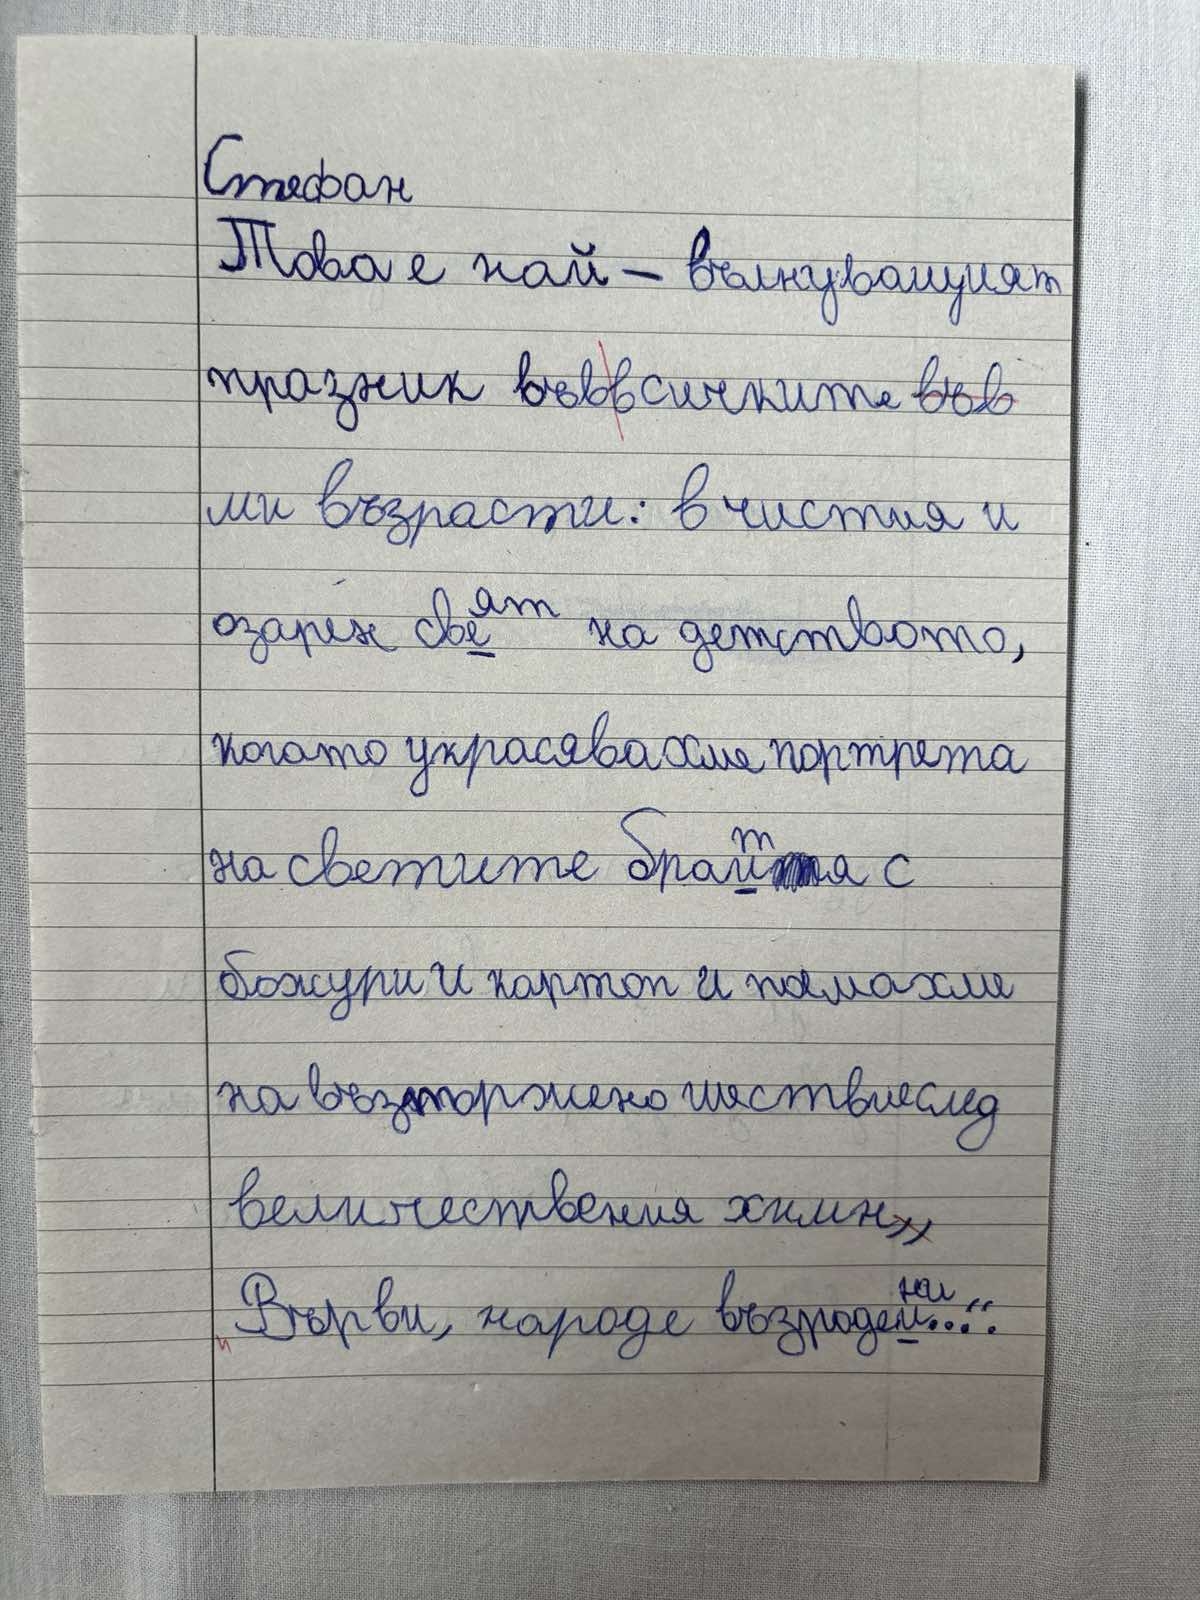 Стефан
Това е най - вълнуващуият
празник във всичките във
ми възрасти: в чистия и
озарен свеят на детството,
когато украсявахме портрета
на светите братя с
божури и картон и пеемахме
на възторжено шествие след
величествения химн „
Върви, народе възродени...“.